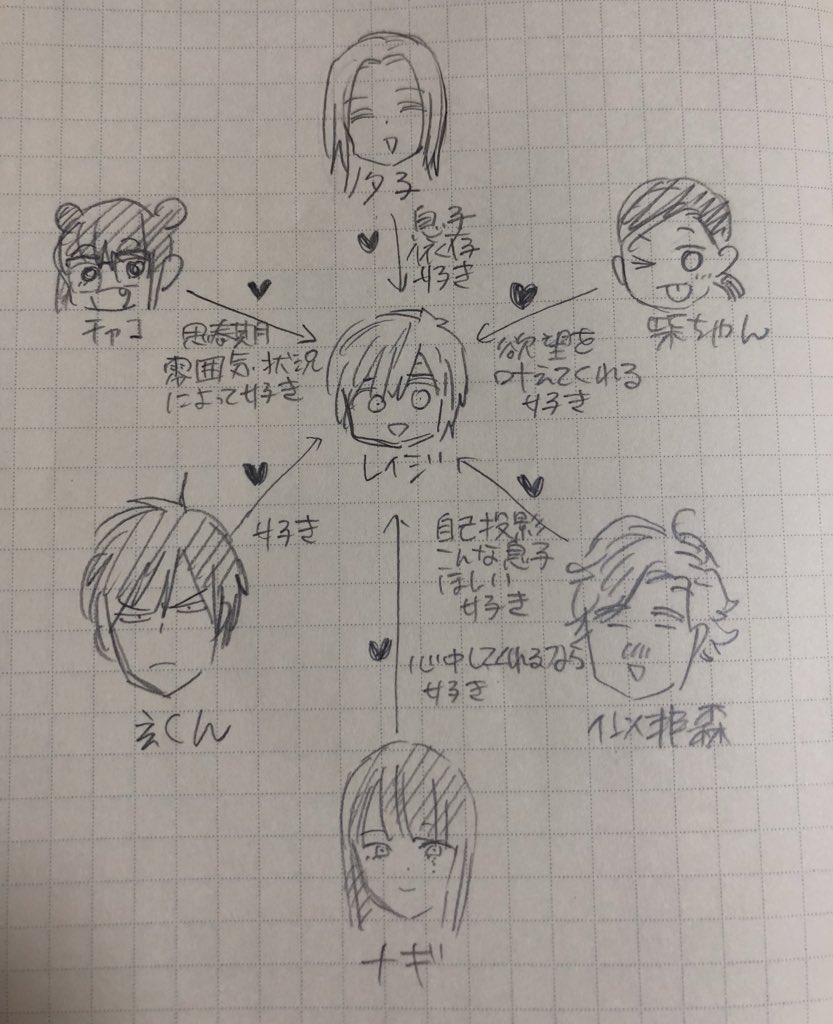 夕子
息子
依存
好き
チャコ
思春期
雰囲気・状況
によって好き
柴ちゃん
欲望を
叶えてくれる
好き
レイジ
好き
玄くん
自己投影
こんな息子
ほしい
好き
心中してくれるなら
好き
ナギ